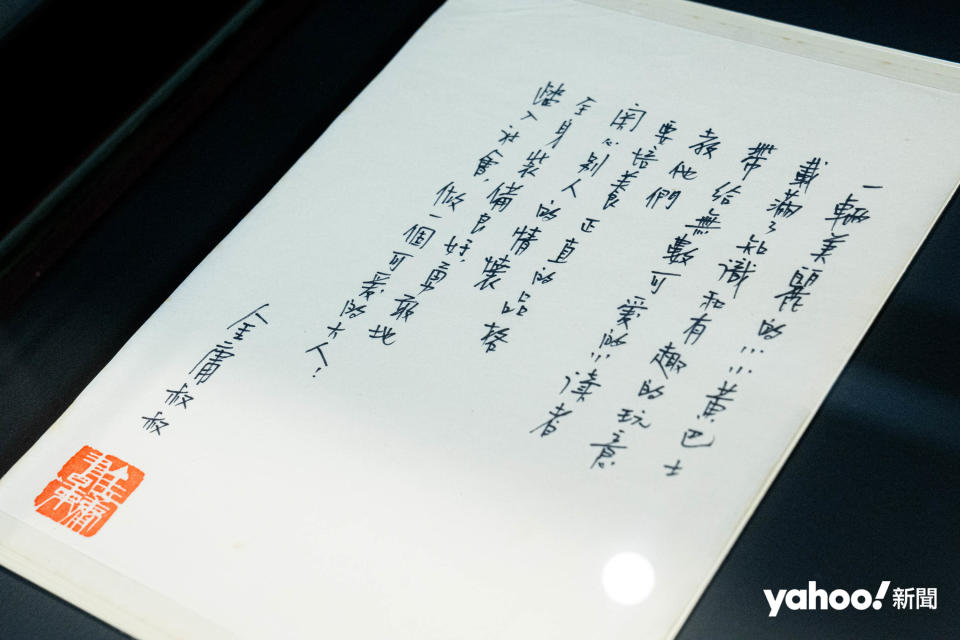 一輛美麗的小小黃巴士
載滿了知識和有趣的玩意
帶給無數可愛的小读者
教他們
要培養正直的品格
関心別人的情懷
全身裝備良好，勇敢地
踏入社會，做一個可愛的大人！
金庸叔叔
yahoo!新聞